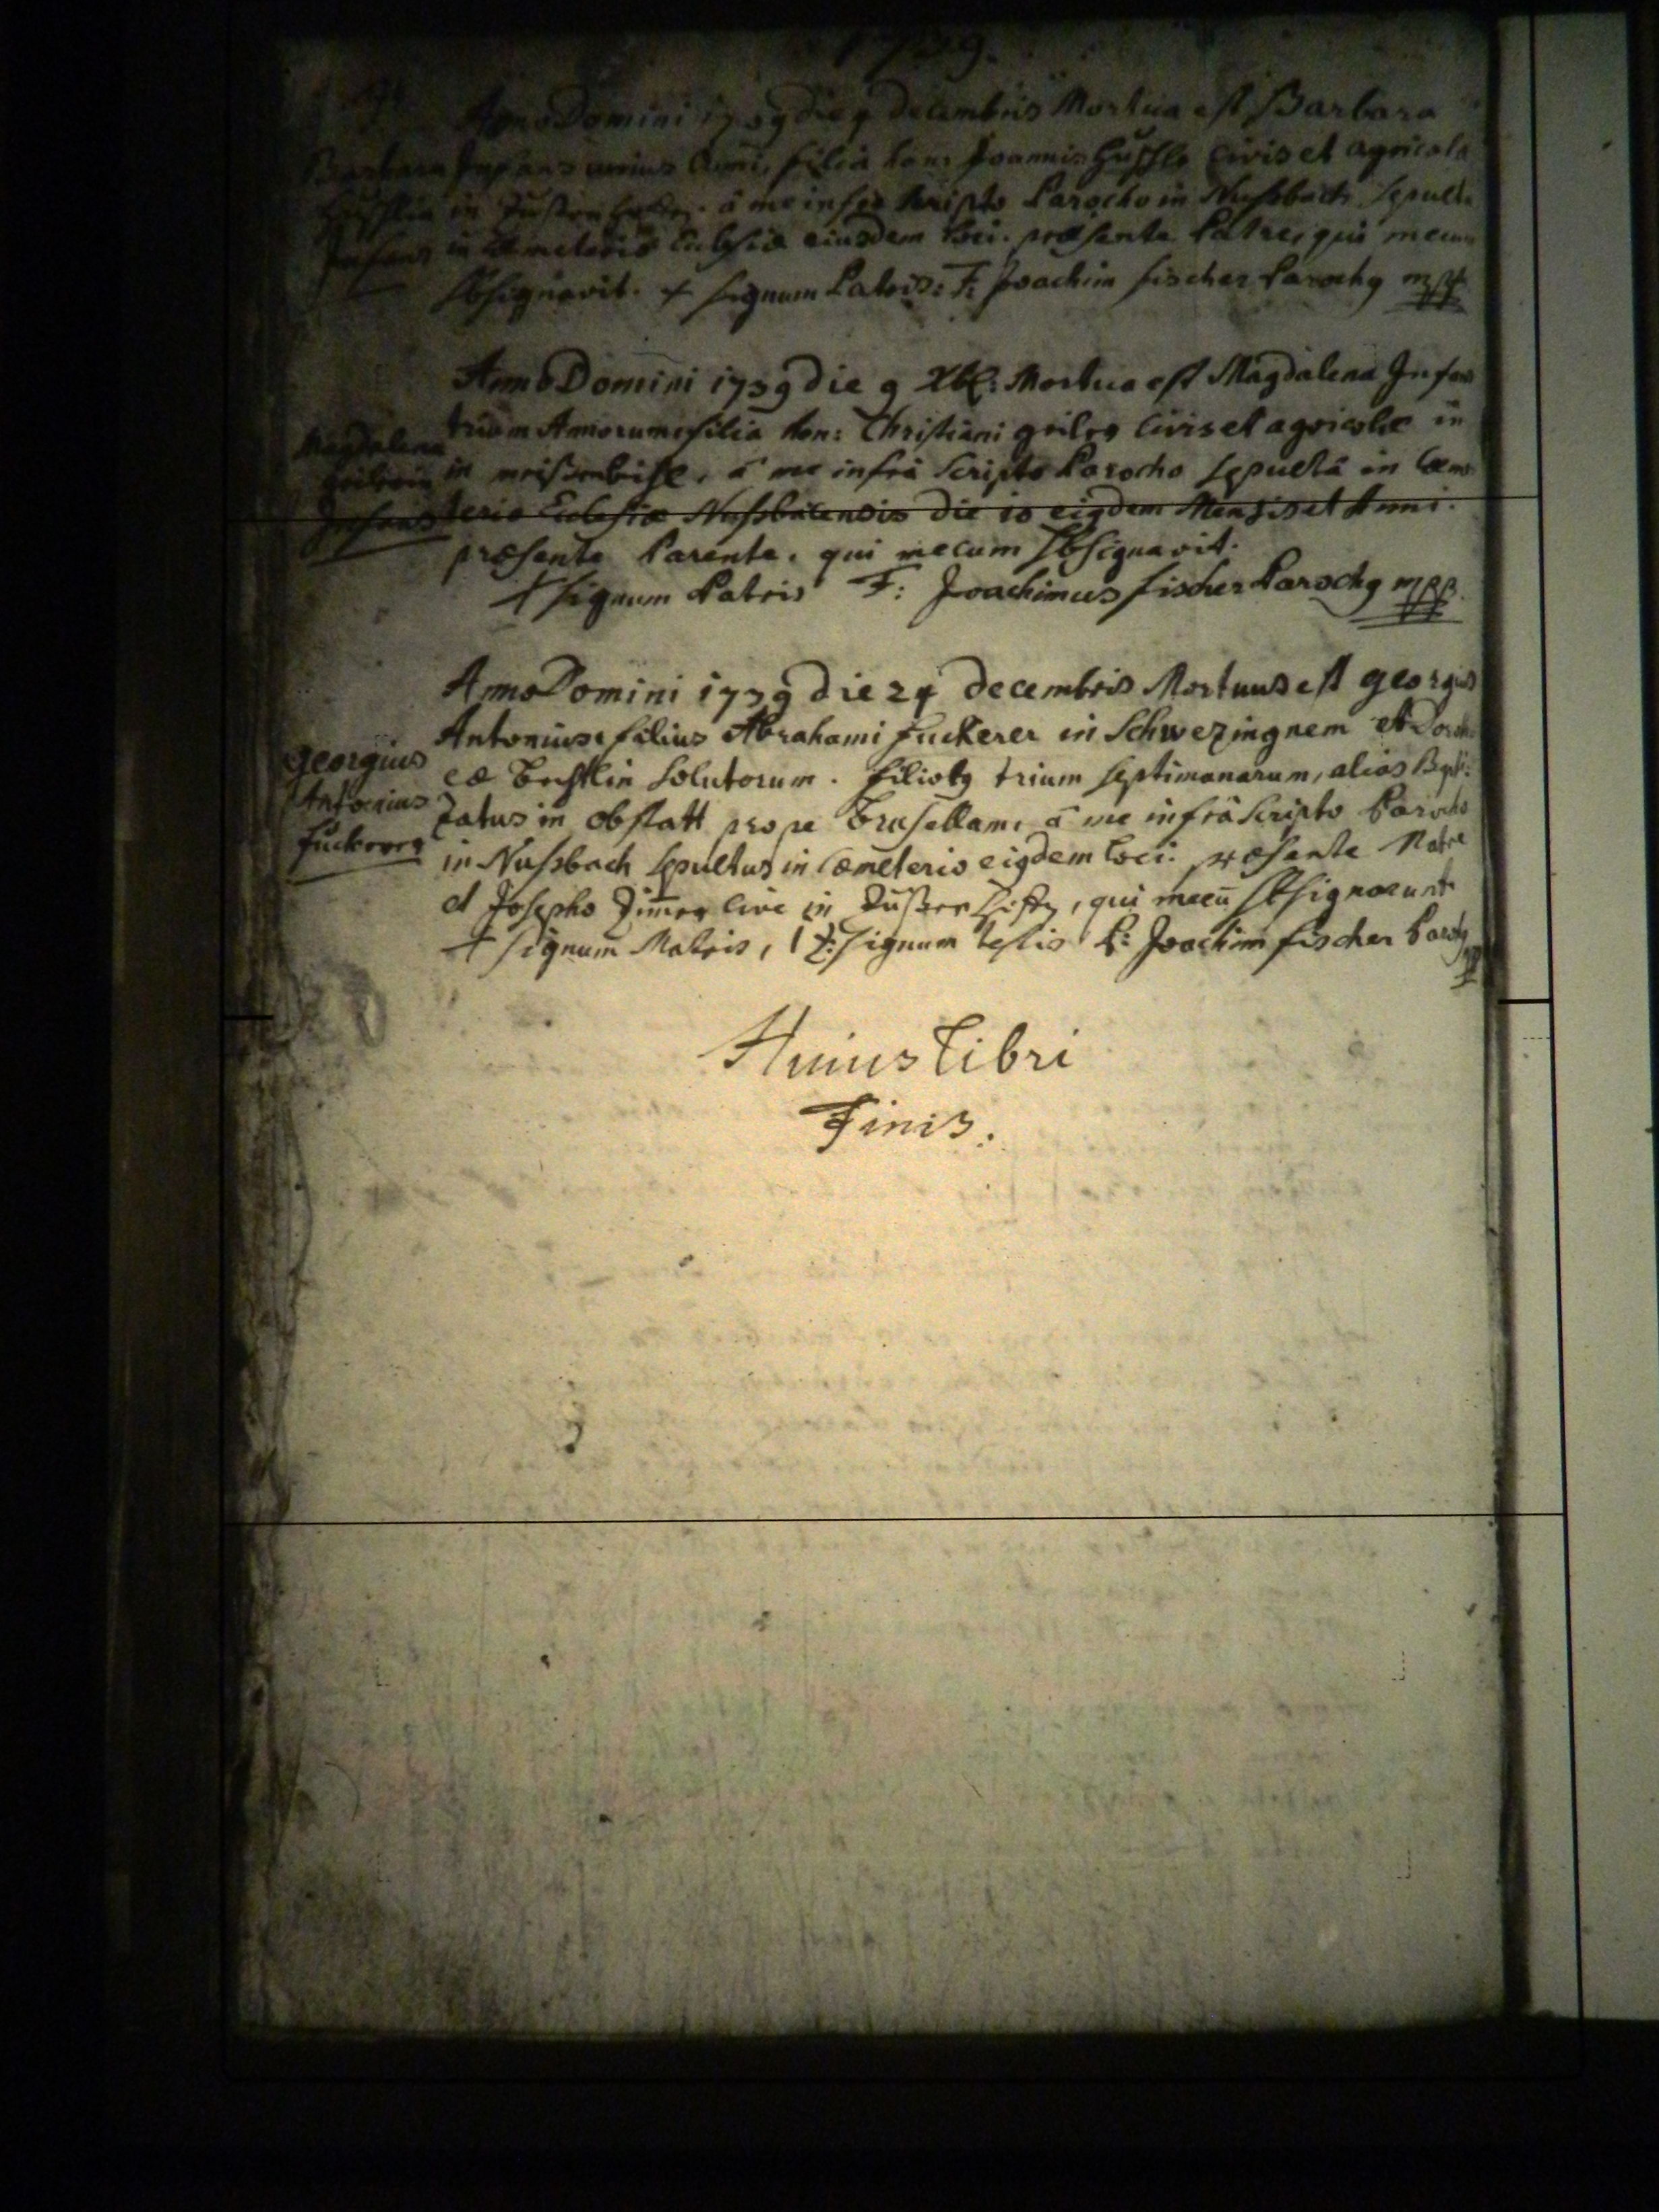 1739.
Anno Domini 1739 die 9 decembris Mortua est Barbara
Barbara Infans unius Anni, filia hon: Joannis Huschle civis et agricolæ
in à me infra scripto Parocho in Nußbach sepulta
Infans in Cæmeterio Ecclesiæ eiusdem loci. præsente Patre, qui mecum
subsignavit. + signum Patris: F: Joachim fischer Parochy mpp
Anno Domini 1739 die 9 Xbr: Mortua est Magdalena Infans
trium Annorum, filia hon: Christiani civis et agricolæ in
Magdalena
in à me infra scripto Parocho sepulta in Cæme
Infans
terio Eclesiæ Nußbacensis die 10 eiqdem Mensis et Anni.
præsente Parente, qui mecum subsignavit.
+ signum Patris F: Joachimus fischer Parochy mpp.
Anno Domini 1739 die 24 decembris Mortuus est georgius
Antonius, filius Abrahami fuckerer in Schwezingnem et Doroth
georgius
eæ solutorum. filioly trium septimanarum, alias Bapti:
Antonius
zatus in obstatt prope Brusellam, à me infrà scripto Parocho
fuckerer
in Nußbach sepultus in Cæmeterio eiqdem loci. præsente Matre
et Josepho Zimer cive in qui mecū subsignarunt
+ signum Matris, signum testis P: Joachim fischer Parochy
Huius Libri
Finis.